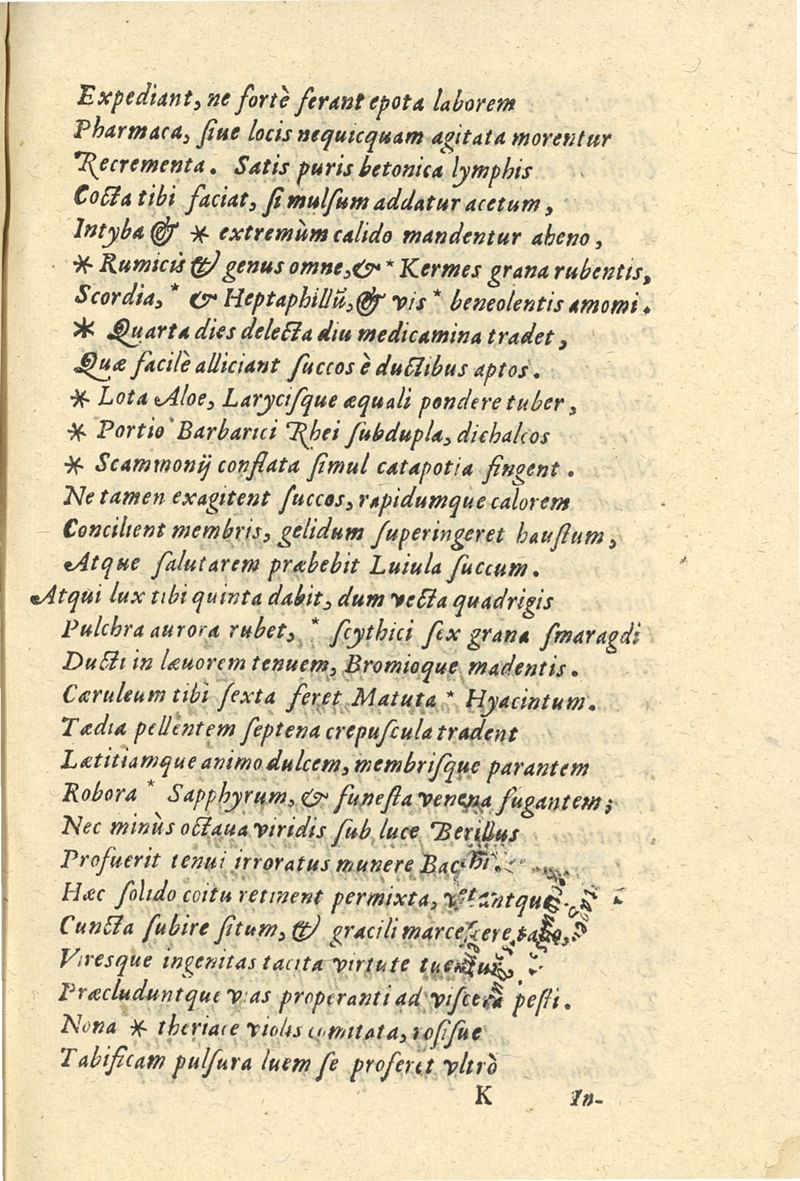 Expediant, ne fortè ferant epota laborem
Pharmaca, ſiue locis nequicquam agitata morentur
Recrementa. Satis puris betonica lymphis
Cocta tibi faciat, ſi mulſum addatur acetum,
Intyba & * extremùm calido mandentur aheno,
* Rumicis & genus omne, & * Kermes grana rubentis,
Scordia, * & Heptaphillũ, & vis * beneolentis amomi.
* Quarta dies delecta diu medicamina tradet,
Quæ facilè alliciant ſuccos è ductibus aptos.
* Lota Aloe, Laryciſque æquali pondere tuber,
* Portio Barbarici Rhei ſubdupla, dichalcos
* Scammonij conflata ſimul catapotia fingent.
Ne tamen exagitent ſuccos, rapidumque calorem
Concilient membris, gelidum ſuperingeret hauſtum,
Atque ſalutarem præbebit Luiula ſuccum.
Atqui lux tibi quinta dabit, dum vecta quadrigis
Pulchra aurora rubet, * ſcythici ſex grana ſmaragdi
Ducti in læuorem tenuem, Bromioque madentis.
Cæruleum tibi ſexta feret Matuta * Hyacintum.
Tædia pellentem ſeptena crepuſcula tradent
Lætitiamque animo dulcem, membriſque parantem
Robora * Sapphyrum, & funeſta venena fugantem;
Nec minùs octaua viridis ſub luce Berillus
Profuerit tenui irroratus munere Bacchi.
Hæc ſolido coitu retinent permixta, vetantque
Cuncta ſubire ſitum, & gracili marceſcere
Vireſque ingenitas tacita virtute tuentur
Præcluduntque vias properanti ad viſcera peſti.
Nona * theriace violis comitata, roſiſue
Tabificam pulſura luem ſe proferet vltrò
K In-